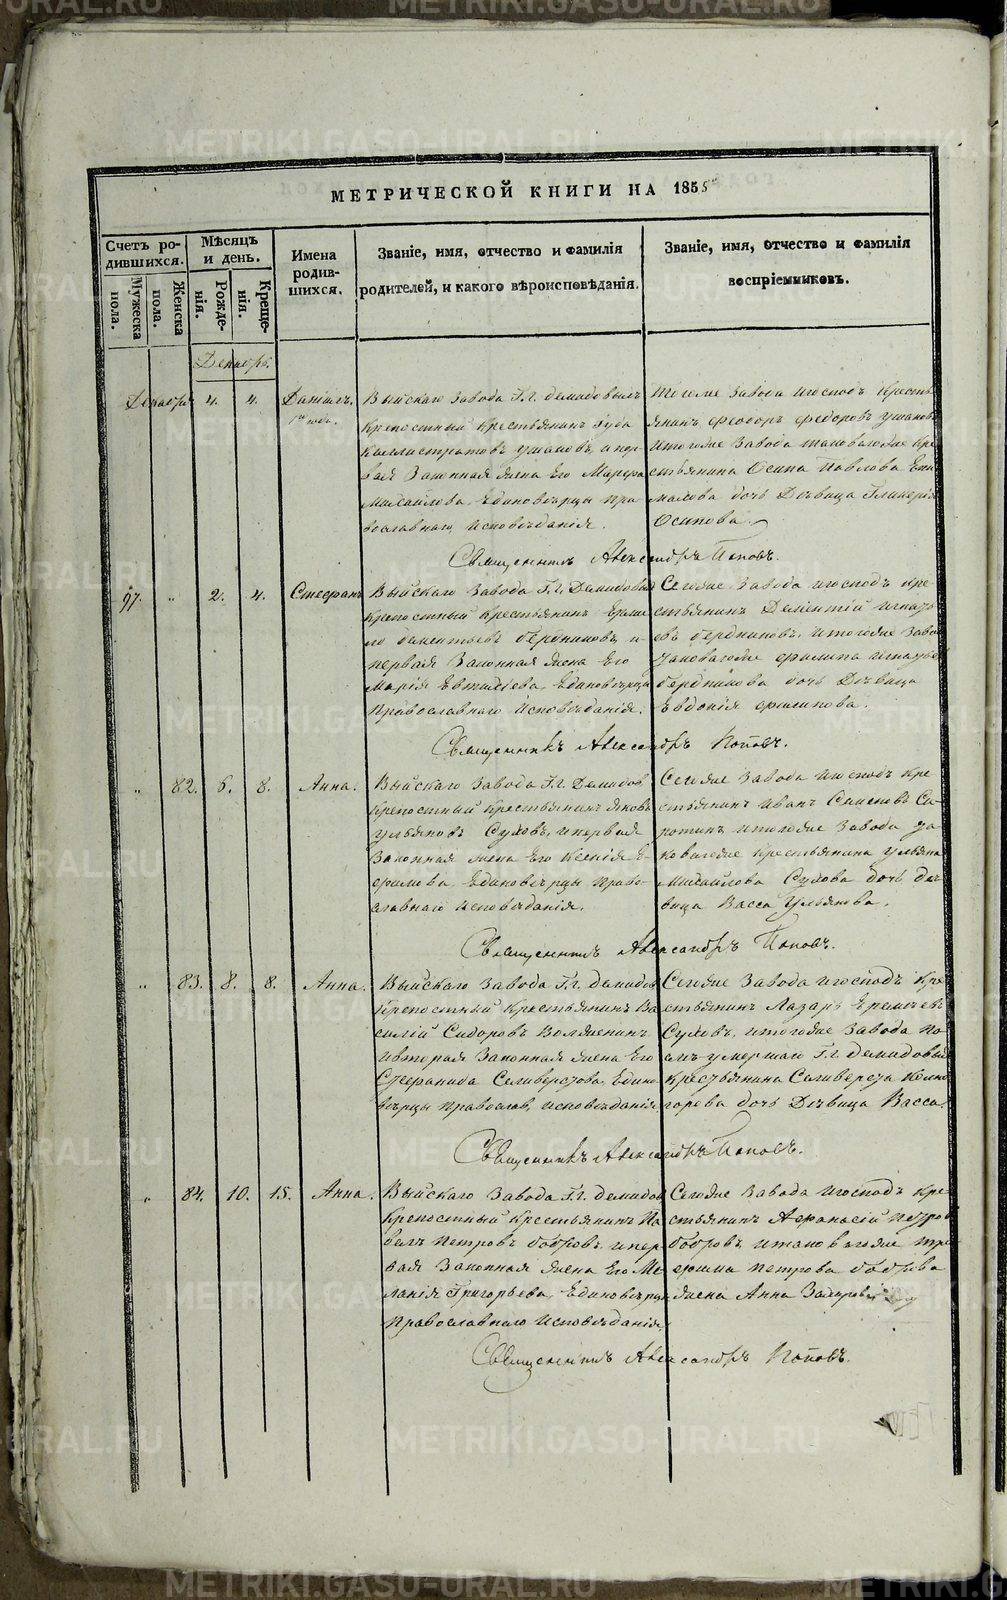 МЕТРИЧЕСКОЙ КНИГИ НА 1855
Счетъ ро-
дившихся.
Мужеска
пола.
Женска
пола.
Мѣсяцъ
и день.
Рожде-
нія.
Креще-
нія.
Имена
родив-
шихся.
Званіе, имя, отчество и фамилія
родителей, и какого вѣроисповѣданія.
Званіе, имя, отчество и фамилія
воспріемниковъ.
Декабрь.
Декабрь 4. 4. Даніилъ.
Выйскаго завода Г.г. Демидовыхъ
крепостный крестьянинъ
Каллистратовъ Ушаковъ, и пер-
вая законная жена его
Михайлова Единоверцы пра-
вославнаго исповѣданія.
Тогоже завода и господъ кресть-
янинъ Феодоръ Федоровъ Ушаковъ
и тогоже завода таковагоже кре-
стьянина Осипа Павлова
дочь Дѣвица Гликерія
Осипова.
Священникъ Александръ Поповъ.
97. " 2. 4. Стефанъ
Выйскаго завода Г.г. Демидовыхъ
крепостный крестьянинъ
Бердниковъ, и
первая законная жена его
Марія Евтихіева, Единоверцы
Православнаго исповѣданія.
Сегоже завода и господъ кре-
стьянинъ Дементій Игнать-
евъ Бердниковъ, и тогоже заво-
таковагоже Филипа Игнатье
Бердникова дочь Дѣвица
Евдокія Филипова.
Священникъ Александръ Поповъ.
" 82. 6. 8. Анна.
Выйскаго завода Г.г. Демидов
крепостный крестьянинъ Яковъ
Ульяновъ Суховъ, и первая
законная жена его Ксенія Е-
фимова, Единоверцы Право-
славнаго исповѣданія.
Сегоже завода и господъ кре-
стьянинъ Иванъ Савеловъ Си-
ротинъ и тогоже завода та
ковагоже крестьянина Ульяна
Михайлова Сухова дочь дѣ-
вица Васса Ульянова.
Священникъ Александръ Поповъ.
" 83. 8. 8. Анна.
Выйскаго завода Г.г. Демидов
крепостный крестьянинъ Ва
силій Сидоровъ Волженинъ
и вторая законная жена его
Стефанида Селиверстова, Едино
верцы православ. исповѣданія
Сегоже завода и господъ кре
стьянинъ Лазарь Еремѣевъ
Суховъ, и тогоже завода по
умершаго Г.г. Демидовыхъ
крестьянина Селиверста
горева дочь Дѣвица Васса.
Священникъ Александръ Поповъ.
" 84. 10. 15. Анна.
Выйскаго завода Г.г. Демидов
крепостный крестьянинъ Па
велъ Петровъ Бобровъ и пер
вая законная жена его Ме
ланія Григорьева, Единоверцы
Православнаго исповѣданія,
Сегоже завода и господъ кре
стьянинъ Афанасій Петров
Бобровъ и таковагоже Тро
фима Петрова Боброва
жена Анна Захарова
Священникъ Александръ Поповъ.
METRIKI.GASO-URAL.RU